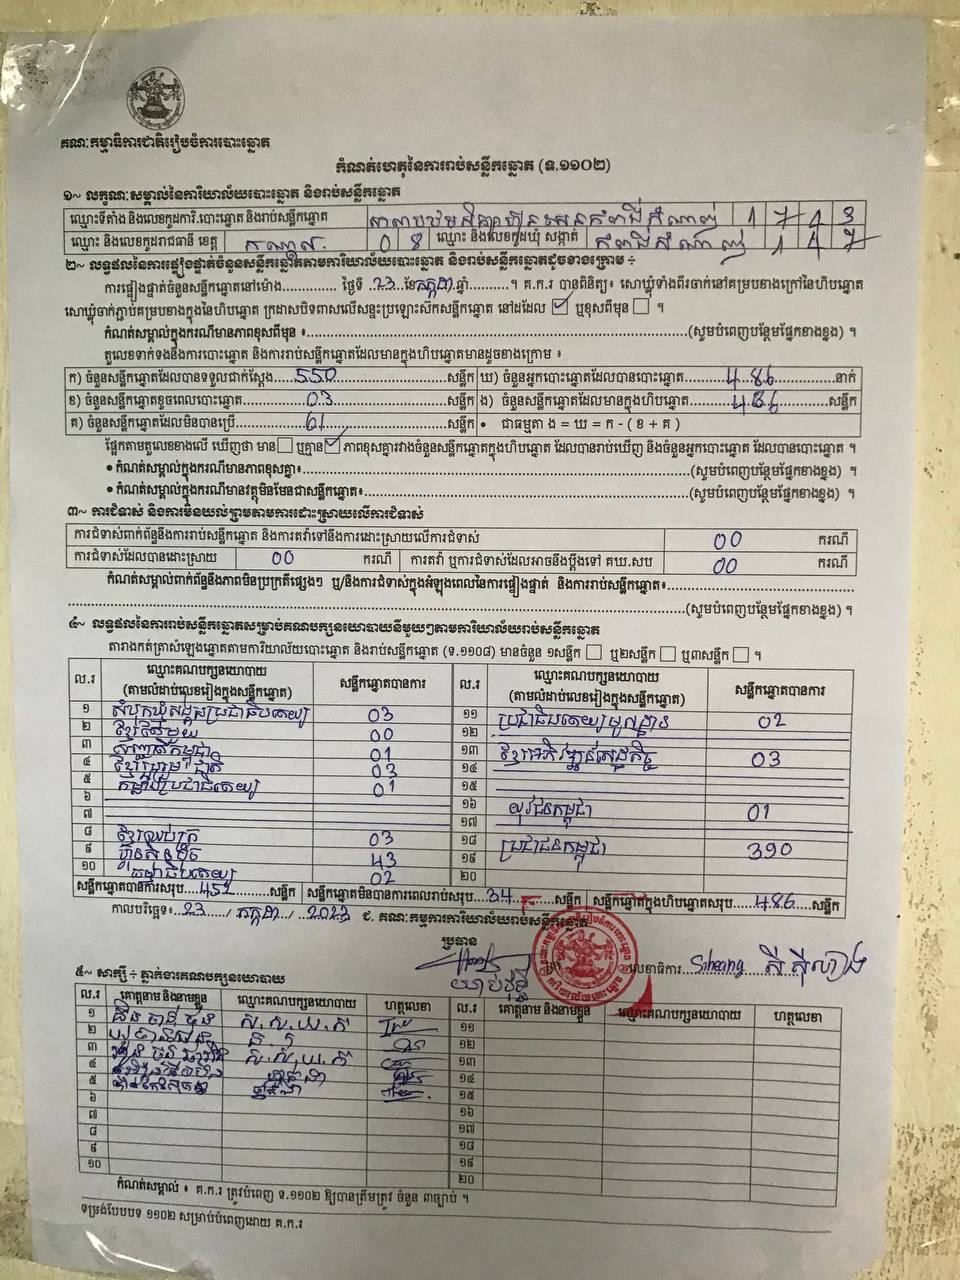 គណៈកម្មាធិការជាតិរៀបចំការបោះឆ្នោត
កំណត់ហេតុនៃការរាប់សន្លឹកឆ្នោត (ទ.១១០២)
១~ លក្ខណៈសម្គាល់នៃការិយាល័យបោះឆ្នោត និងរាប់សន្លឹកឆ្នោត
ឈ្មោះទីតាំង និងលេខកូដការិ.បោះឆ្នោត និងរាប់សន្លឹកឆ្នោត
ឈ្មោះ និងលេខកូដរាជធានី ខេត្ត កណ្តាល 0 8 ឈ្មោះ និងលេខកូដឃុំ សង្កាត់ 1 4 7
២~ លទ្ធផលនៃការផ្ទៀងផ្ទាត់ចំនួនសន្លឹកឆ្នោតតាមការិយាល័យបោះឆ្នោត និងរាប់សន្លឹកឆ្នោតដូចខាងក្រោម ÷
ការផ្ទៀងផ្ទាត់ចំនួនសន្លឹកឆ្នោតនៅម៉ោង.............. ថ្ងៃទី ..23..ខែកក្កដា..ឆ្នាំ.........។ គ.ក.រ បានពិនិត្យ៖ សោឃ្លុំទាំងពីរចាក់នៅគម្របខាងក្រៅនៃហិបឆ្នោត
សោឃ្លុំចាក់ភ្ជាប់គម្របខាងក្នុងនៃហិបឆ្នោត ក្រដាសបិទពាសលើសន្ទះប្រឡោះស៊កសន្លឹកឆ្នោត នៅដដែល ☑ ឬខុសពីមុន ☐ ។
កំណត់សម្គាល់ក្នុងករណីមានភាពខុសពីមុន ៖..........(សូមបំពេញបន្ថែមផ្នែកខាងខ្នង) ។
តួលេខទាក់ទងនឹងការបោះឆ្នោត និងការរាប់សន្លឹកឆ្នោតដែលមានក្នុងហិបឆ្នោតមានដូចខាងក្រោម ៖
ក) ចំនួនសន្លឹកឆ្នោតដែលបានទទួលជាក់ស្តែង....550....សន្លឹក ឃ) ចំនួនអ្នកបោះឆ្នោតដែលបានបោះឆ្នោត....486....នាក់
ខ) ចំនួនសន្លឹកឆ្នោតខូចពេលបោះឆ្នោត....03....សន្លឹក ង) ចំនួនសន្លឹកឆ្នោតដែលមានក្នុងហិបឆ្នោត....486....សន្លឹក
គ) ចំនួនសន្លឹកឆ្នោតដែលមិនបានប្រើ....61....សន្លឹក • ជាធម្មតា ង = ឃ = ក - ( ខ + គ )
ផ្អែកតាមតួលេខខាងលើ ឃើញថា មាន ☐ ឬគ្មាន ☑ ភាពខុសគ្នារវាងចំនួនសន្លឹកឆ្នោតក្នុងហិបឆ្នោត ដែលបានរាប់ឃើញ និងចំនួនអ្នកបោះឆ្នោត ដែលបានបោះឆ្នោត ។
• កំណត់សម្គាល់ក្នុងករណីមានភាពខុសគ្នា៖..........(សូមបំពេញបន្ថែមផ្នែកខាងខ្នង) ។
• កំណត់សម្គាល់ក្នុងករណីមានវត្ថុមិនមែនជាសន្លឹកឆ្នោត៖..........(សូមបំពេញបន្ថែមផ្នែកខាងខ្នង) ។
៣~ ការជំទាស់ និងការមិនយល់ព្រមតាមការដោះស្រាយលើការជំទាស់
ការជំទាស់ពាក់ព័ន្ធនឹងការរាប់សន្លឹកឆ្នោត និងការតវ៉ាទៅនឹងការដោះស្រាយលើការជំទាស់ 00 ករណី
ការជំទាស់ដែលបានដោះស្រាយ 00 ករណី ការតវ៉ា ឬការជំទាស់ដែលអាចនឹងប្តឹងទៅ គឃ.សប 00 ករណី
កំណត់សម្គាល់ពាក់ព័ន្ធនឹងភាពមិនប្រក្រតីផ្សេងៗ ឬ/និងការជំទាស់ក្នុងអំឡុងពេលនៃការផ្ទៀងផ្ទាត់ និងការរាប់សន្លឹកឆ្នោត៖..........
..........(សូមបំពេញបន្ថែមផ្នែកខាងខ្នង) ។
៤~ លទ្ធផលនៃការរាប់សន្លឹកឆ្នោតសម្រាប់គណបក្សនយោបាយនីមួយៗតាមការិយាល័យរាប់សន្លឹកឆ្នោត
តារាងកត់ត្រាសំឡេងឆ្នោតតាមការិយាល័យបោះឆ្នោត និងរាប់សន្លឹកឆ្នោត (ទ.១១០៨) មានចំនួន ១សន្លឹក ☐ ឬ២សន្លឹក ☐ ឬ៣សន្លឹក ☐ ។
ល.រ ឈ្មោះគណបក្សនយោបាយ (តាមលំដាប់លេខរៀងក្នុងសន្លឹកឆ្នោត) សន្លឹកឆ្នោតបានការ ល.រ ឈ្មោះគណបក្សនយោបាយ (តាមលំដាប់លេខរៀងក្នុងសន្លឹកឆ្នោត) សន្លឹកឆ្នោតបានការ
១ សំបុកឃ្មុំសង្គមប្រជាធិបតេយ្យ 03 ១១ ប្រជាធិបតេយ្យមូលដ្ឋាន 02
២ ខ្មែរតែមួយ 00 ១២
៣ សញ្ជាតិកម្ពុជា 01 ១៣ ខ្មែរអភិវឌ្ឍន៍សេដ្ឋកិច្ច 03
៤ ខ្មែររួបរួមជាតិ 03 ១៤
៥ កម្លាំងប្រជាធិបតេយ្យ 01 ១៥
៦ ១៦ យុវជនកម្ពុជា 01
៧ ១៧
៨ ខ្មែរឈប់ក្រ 03 ១៨ ប្រជាជនកម្ពុជា 390
៩ ហ៊្វុនស៊ិនប៉ិច 43 ១៩
១០ ធម្មាធិបតេយ្យ 02 ២០
សន្លឹកឆ្នោតបានការសរុប....452....សន្លឹក សន្លឹកឆ្នោតមិនបានការពេលរាប់សរុប..34....សន្លឹក សន្លឹកឆ្នោតក្នុងហិបឆ្នោតសរុប..486..សន្លឹក
កាលបរិច្ឆេទ៖..23../ កក្កដា../ ..2023 ជ. គណៈកម្មការការិយាល័យរាប់សន្លឹកឆ្នោត
ប្រធាន លេខាធិការ
៥~ សាក្សី ÷ ភ្នាក់ងារគណបក្សនយោបាយ
ល.រ គោត្តនាម និងនាមខ្លួន ឈ្មោះគណបក្សនយោបាយ ហត្ថលេខា ល.រ គោត្តនាម និងនាមខ្លួន ឈ្មោះគណបក្សនយោបាយ ហត្ថលេខា
១ ១១
២ ១២
៣ ១៣
៤ ១៤
៥ ១៥
៦ ១៦
៧ ១៧
៨ ១៨
៩ ១៩
១០ ២០
កំណត់សម្គាល់ ៖ គ.ក.រ ត្រូវបំពេញ ទ.១១០២ ឱ្យបានត្រឹមត្រូវ ចំនួន ៣ច្បាប់ ។
ទម្រង់បែបបទ ១១០២ សម្រាប់បំពេញដោយ គ.ក.រ